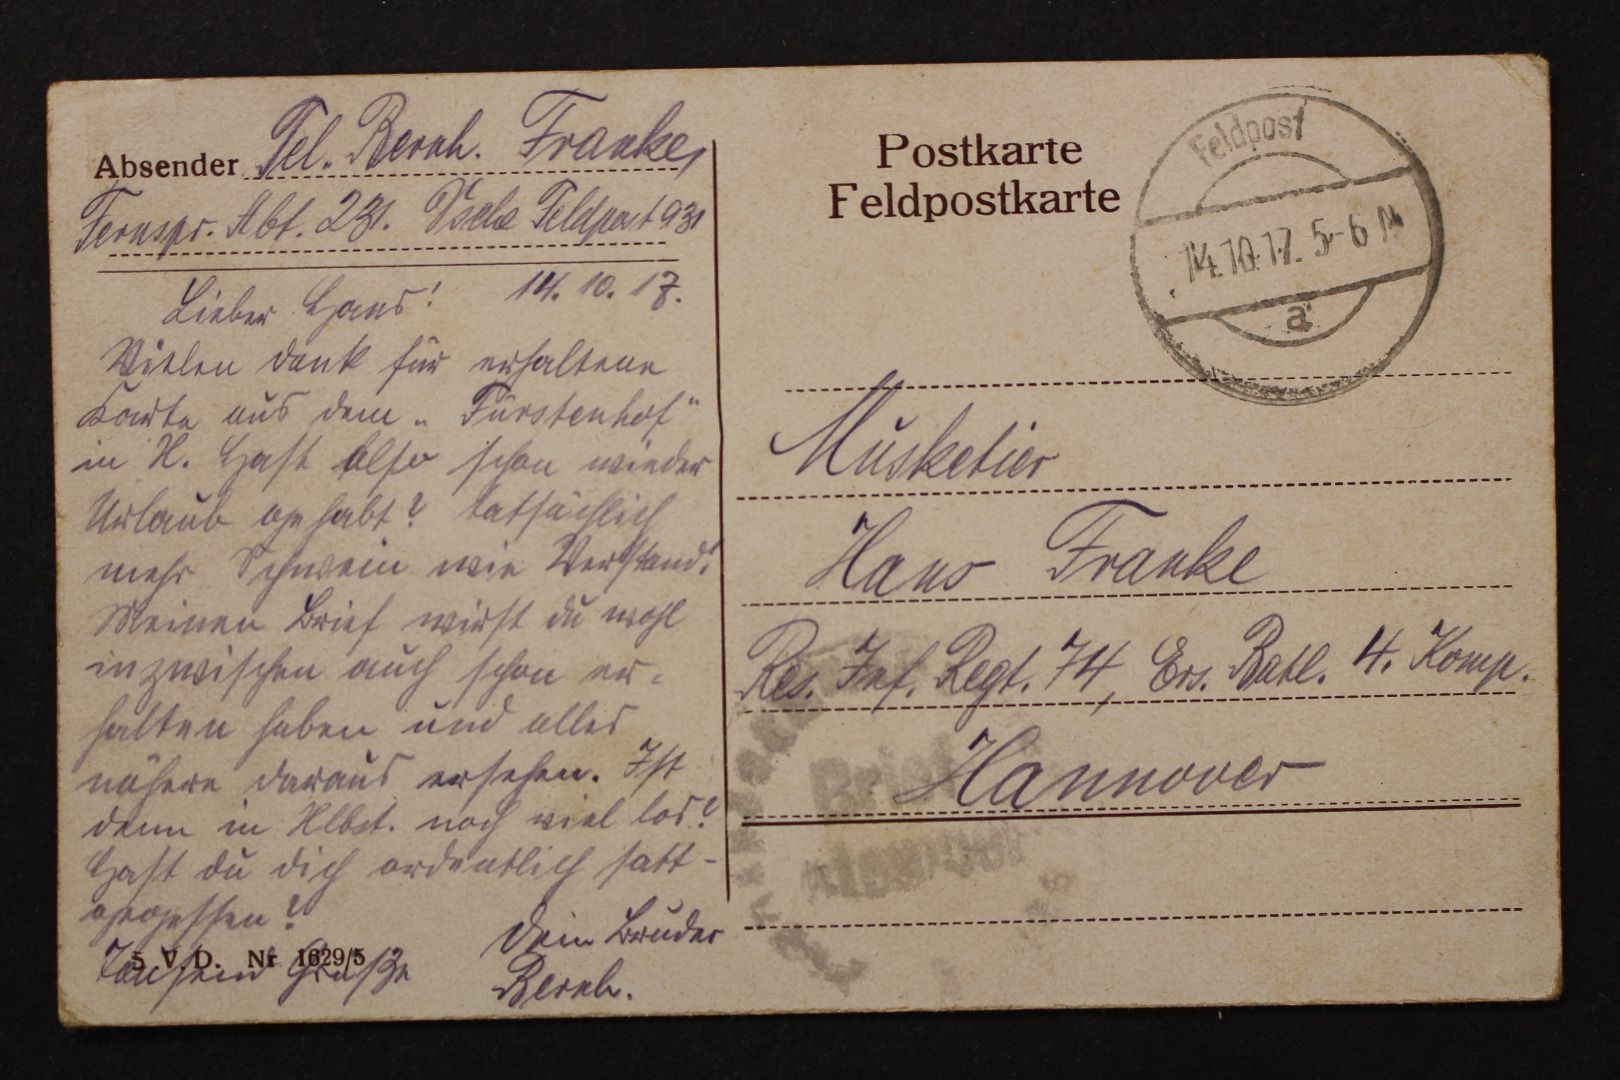 Absender Tel. Bernh. Franke,
Fernspr. Abt. 231. Dsche Feldpost 931
14. 10. 17.
Lieber Hans!
Vielen Dank für erhaltene
Karte aus dem „Fürstenhof"
in H. Hast also schon wieder
Urlaub gehabt? tatsächlich
mehr Schwein wie Verstand!
Meinen Brief wirst du wohl
inzwischen auch schon er-
halten haben und alles
nähere daraus ersehen. Ist
denn in Hlbst. noch viel los?
Hast du dich ordentlich satt-
gegessen?
Tausend Grüße
Dein Bruder
Bernh.
5 V. D. Nr 1629/5
Postkarte
Feldpostkarte
Feldpost
14.10.17. 5-6 N
a
Musketier
Hans Franke
Res. Inf. Regt. 74, Ers. Batl. 4. Komp.
Hannover
Brief
stempel